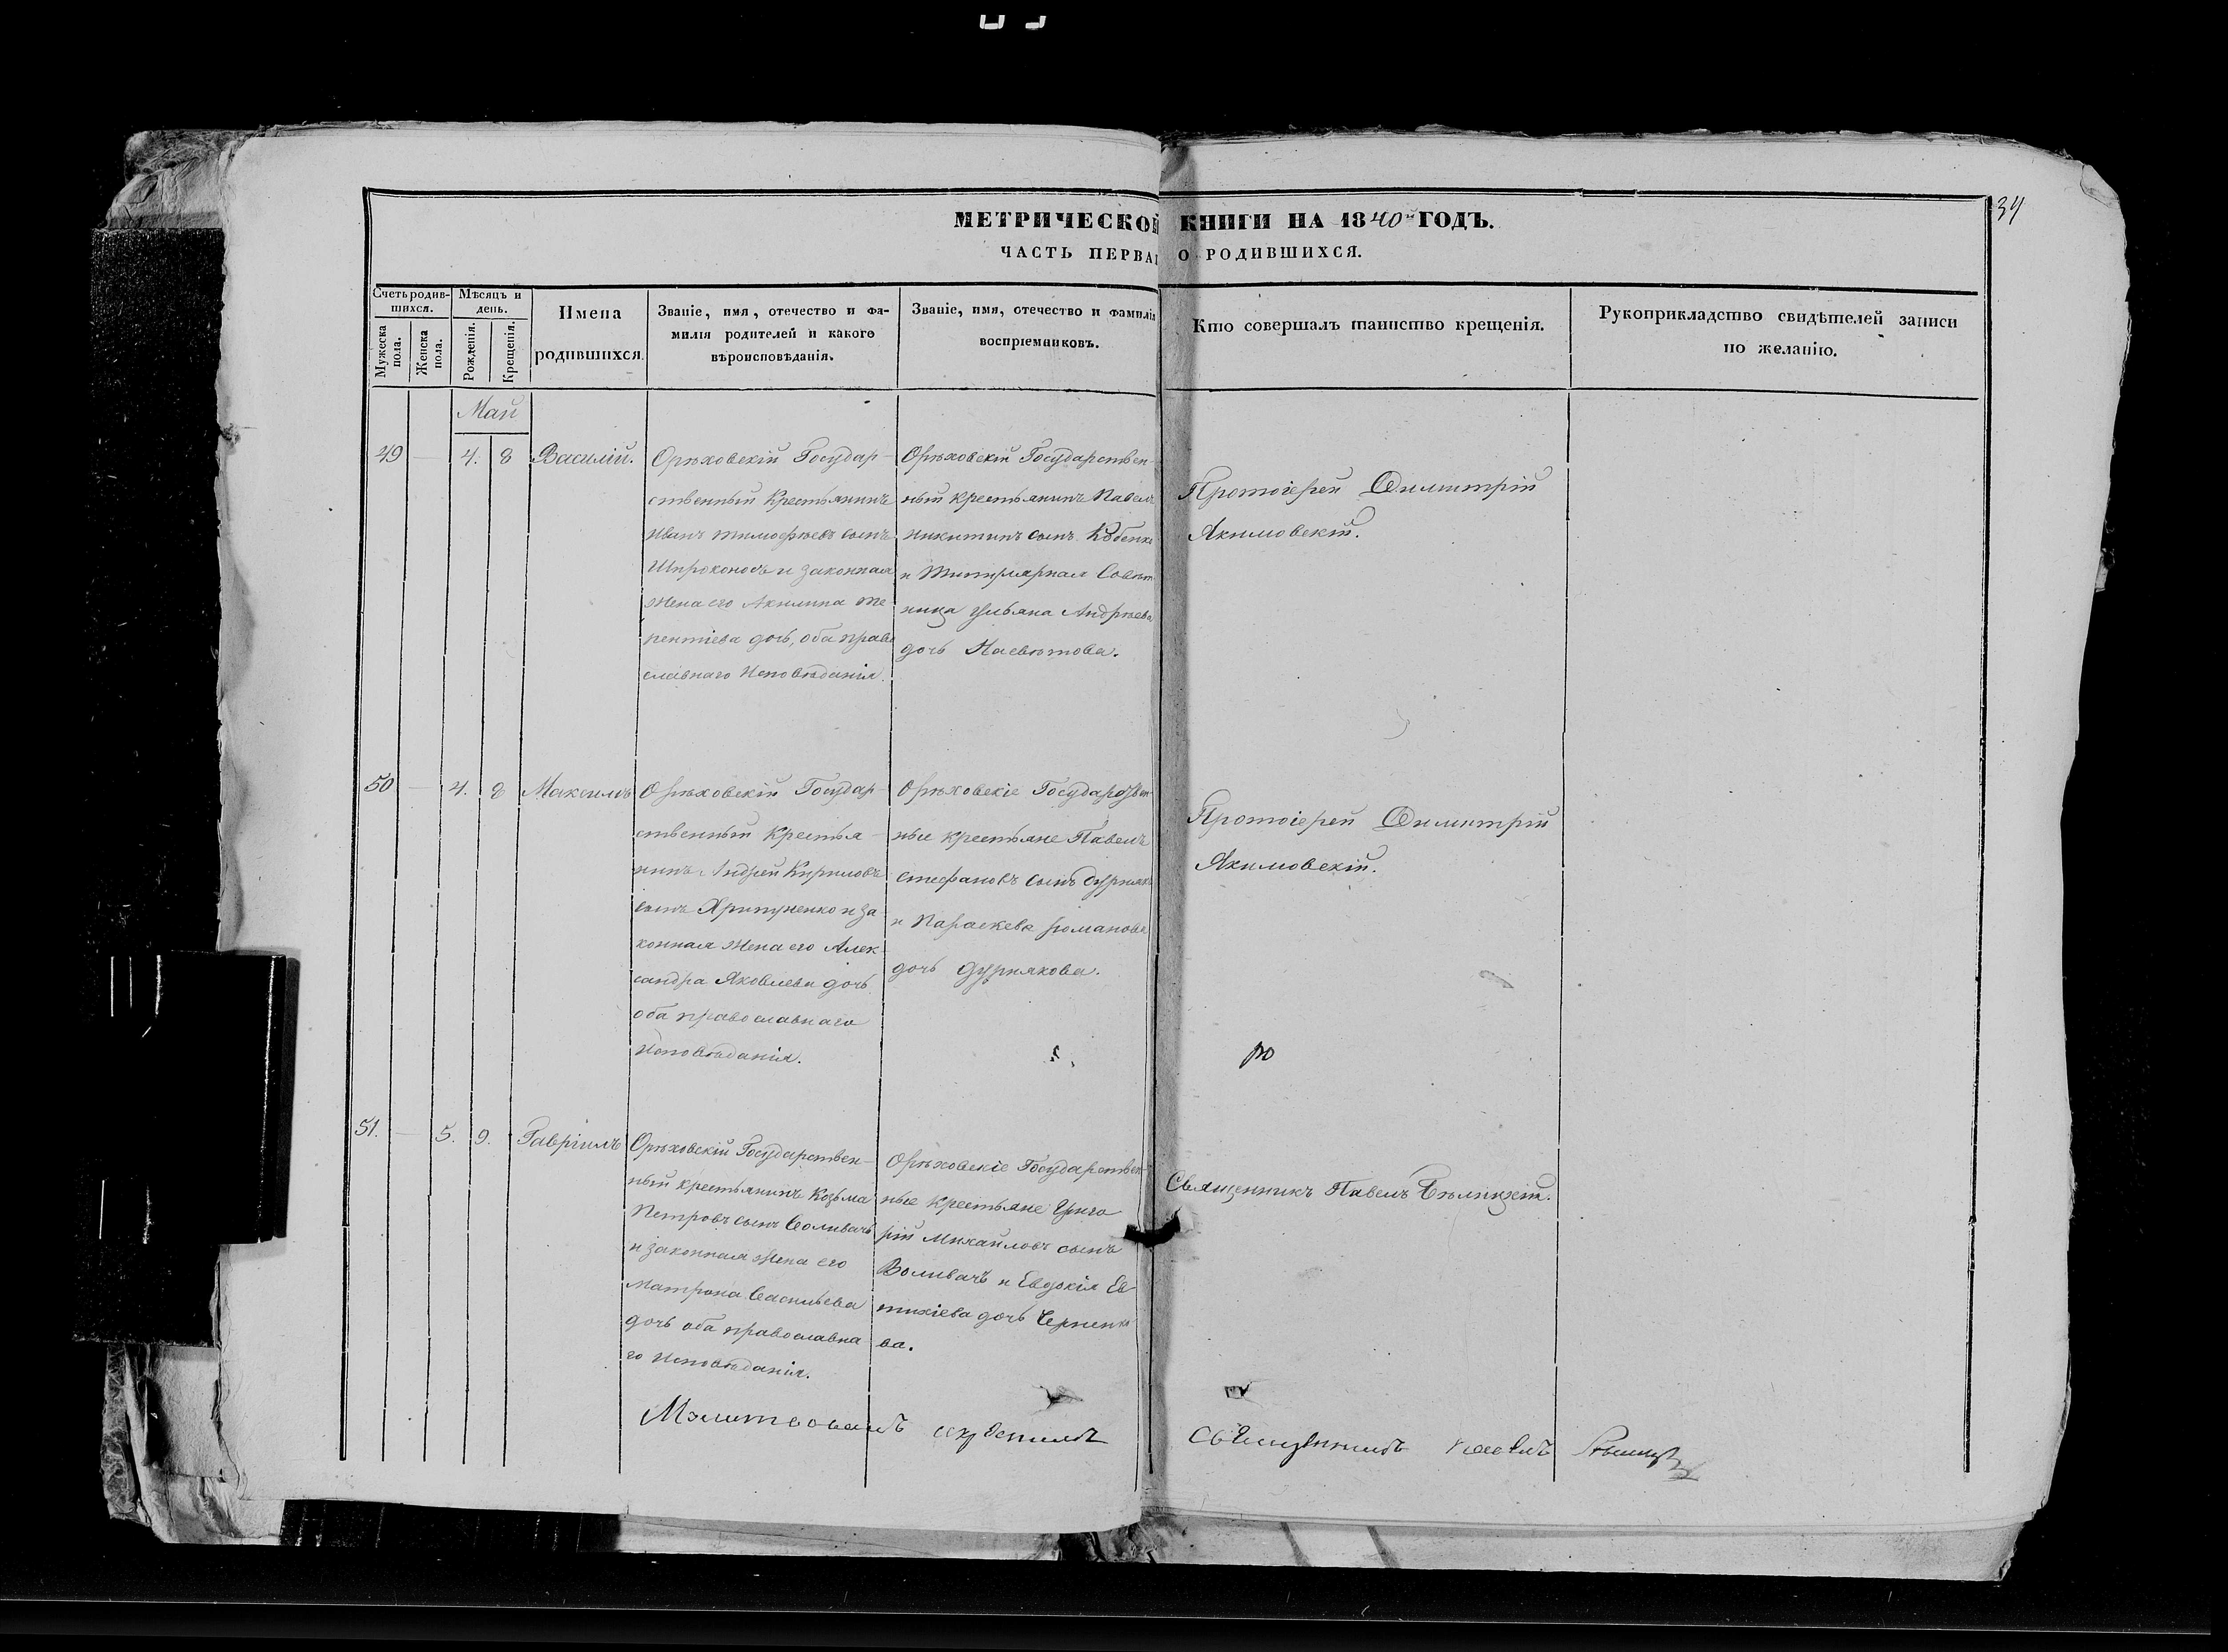 34
МЕТРИЧЕСКОЙ КНИГИ НА 1840й ГОДЪ.
ЧАСТЬ ПЕРВАЯ О РОДИВШИХСЯ.
Счетъ родив-
шихся.
Мужеска пола.
Женска пола.
Мѣсяцъ и
день.
Рожденія.
Крещенія.
Имена
родившихся.
Званіе, имя, отечество и фа-
милія родителей и какого
вѣроисповѣданія.
Званіе, имя, отечество и фамилія
воспріемниковъ.
Кто совершалъ таинство крещенія.
Рукоприкладство свидѣтелей записи
по желанію.
Май
49
4.
8
Василій.
Орѣховскій Государ-
ственный Крестьянинъ
Иванъ Тимофѣевъ сынъ
Широконосъ и законная
жена его Акилина Те
рентіева дочь, оба право
славнаго Исповѣданія.
Орѣховскій Государствен-
ный крестьянинъ Павелъ
Никитинъ сынъ
и Титулярная Совѣт
ница Ульяна Андрѣева
дочь
Протоіерей Димитрій
Акимовскій.
50
4.
8
Максимъ
Орѣховскій Государ-
ственный Крестья-
нинъ Андрей Кириловъ
сынъ Хрипуненко и за-
конная жена его Алек-
сандра Яковлева дочь
оба православнаго
Исповѣданія.
Орѣховскіе Государствен-
ные крестьяне Павелъ
Стефановъ сынъ Дурнякъ
и Параскева Романова
дочь Дурнякова.
Протоіерей Димитрій
Акимовскій.
по
51.
5.
9.
Гавріилъ
Орѣховскій Государствен-
ный крестьянинъ Козьма
Петровъ сынъ
и законная жена его
Матрона Васильева
дочь оба православна
го Исповѣданія.
Орѣховскіе Государствен-
ные крестьяне Григо
рій Михайловъ сынъ
и Евдокія Ев
тихіева дочь Черненко
ва.
Священникъ Павелъ Бѣлицкій.
Молитвовалъ и крестилъ Священникъ Павелъ